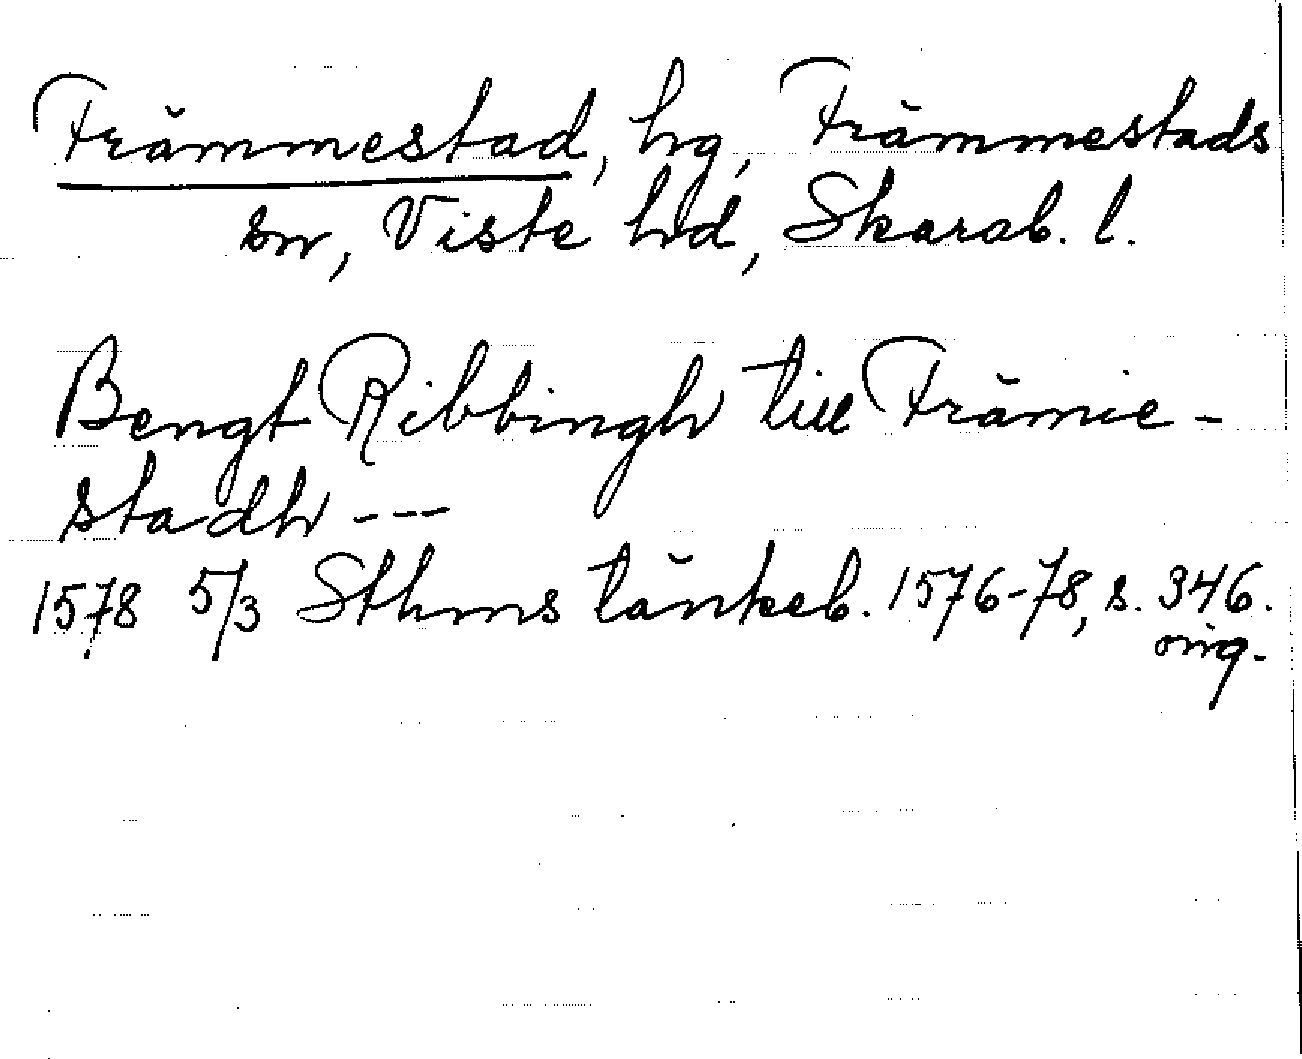 Främmestad, hg, Främmestads
sn, Viste hd, Skarab. l.
Bengt Ribbingh till Främie-
stadh ---
1578 5/3 Sthms tänkeb. 1576-78, s. 346.
orig.